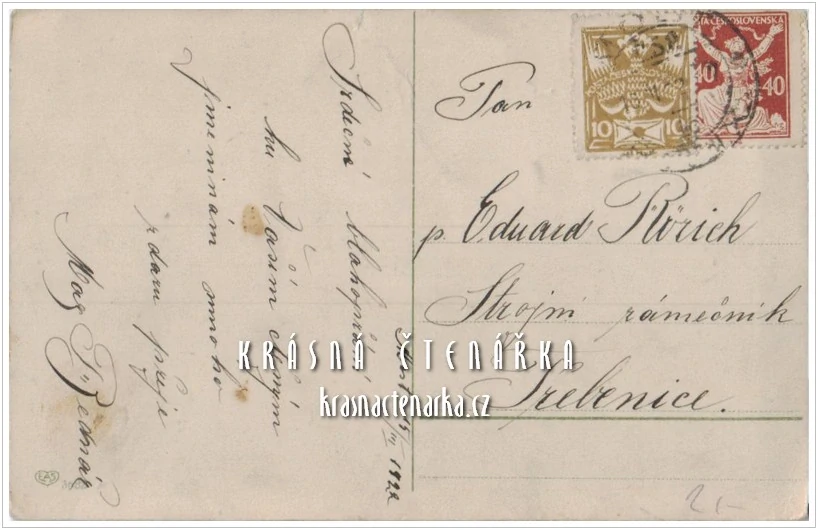 Srdečné blahopřání
ku Vašim ctěným
jmeninám mnoho
zdaru přeje
Mag
15/III 1922
Pan
p. Eduard Rörich
Strojní zámečník
Třebenice.
10 10
ČESKOSLOVENSKÁ
40 40
KRÁSNÁ ČTENÁŘKA
krasnactenarka.cz
EAS
2,-